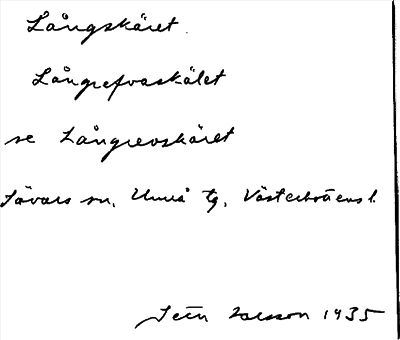 Långskäret
Långrefvaskälet
se Långrevskäret
Sävars sn, Umeå tg, Västerbottens l.
1935